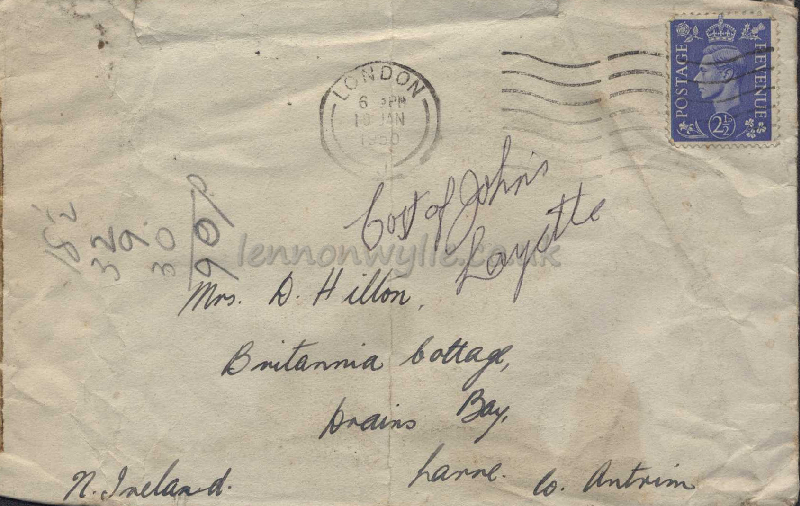 LONDON
6 PM
JAN
POSTAGE
REVENUE
2½D
Cost of John's
Layette
32
30
lennonwylie.co.uk
Mrs. D. Hilton,
Britannia Cottage,
Drains Bay,
Larne. Co. Antrim
N. Ireland.